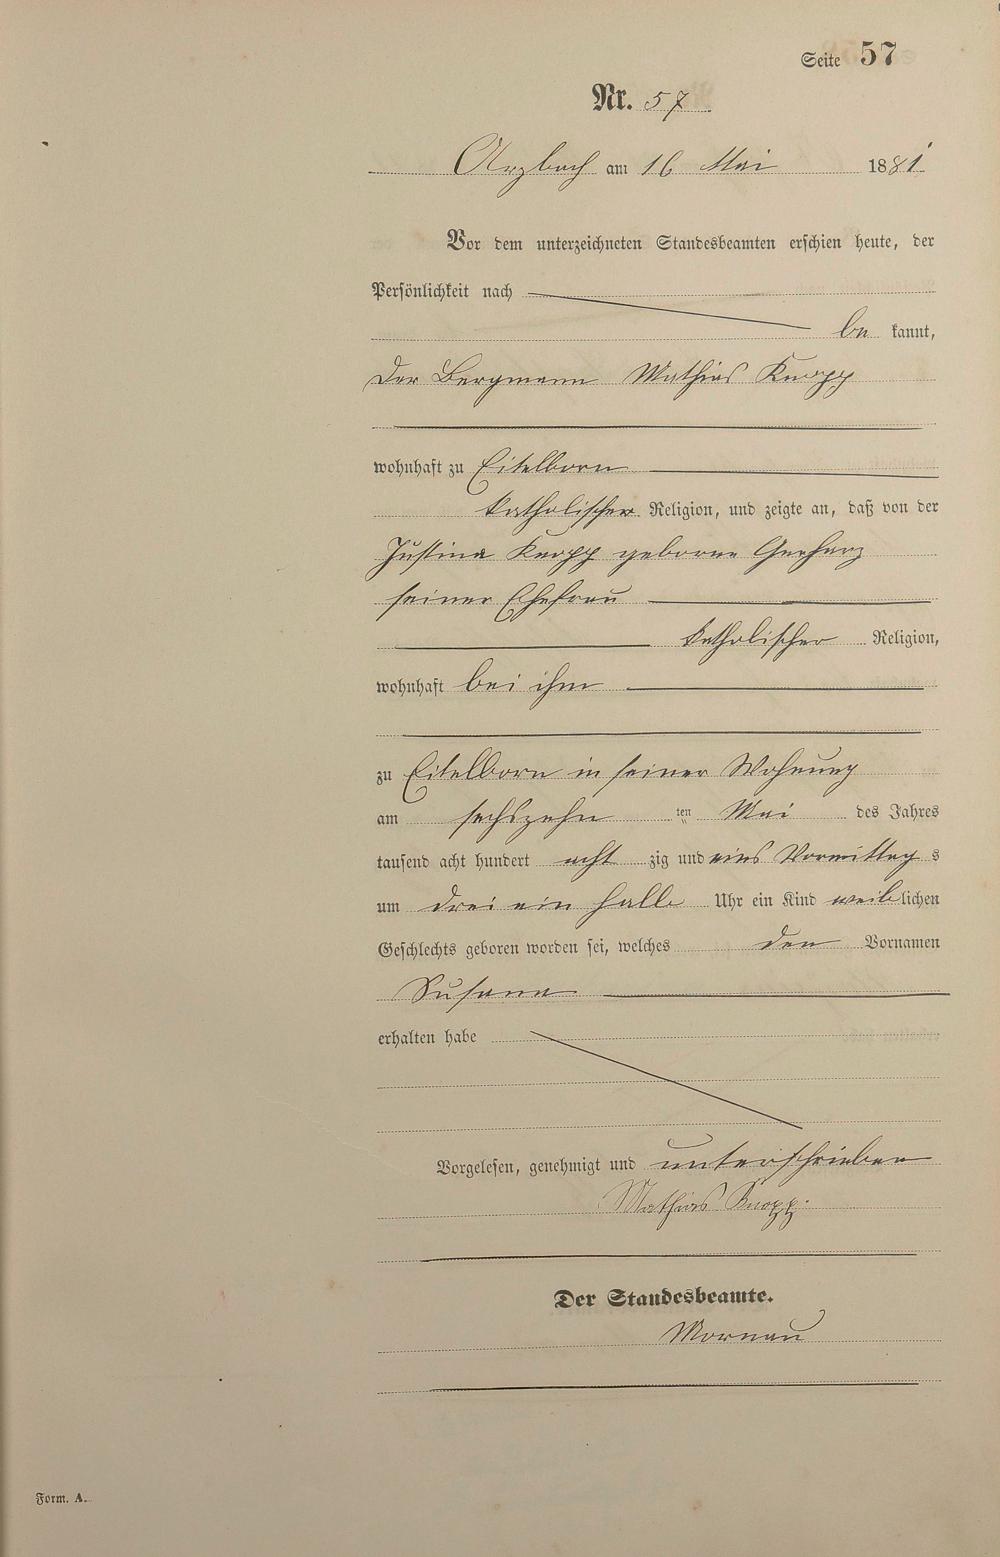 Seite 57
Nr. 57
Arzbach am 16 Mai 1881
Vor dem unterzeichneten Standesbeamten erschien heute, der
Persönlichkeit nach
be kannt,
der Bergmann Mathias Knopp
wohnhaft zu Eitelborn
katholischer Religion, und zeigte an, daß von der
Justina Knopp geborne Gerharz
seiner Ehefrau
katholischer Religion,
wohnhaft bei ihm
zu Eitelborn in seiner Wohnung
am sechszehn ten Mai des Jahres
tausend acht hundert acht zig und eins Vormittag s
um drei ein halb Uhr ein Kind weiblichen
Geschlechts geboren worden sei, welches den Vornamen
Susana
erhalten habe
Vorgelesen, genehmigt und unterschrieben
Mathias Knopp.
Der Standesbeamte.
Mornau
Form. A.